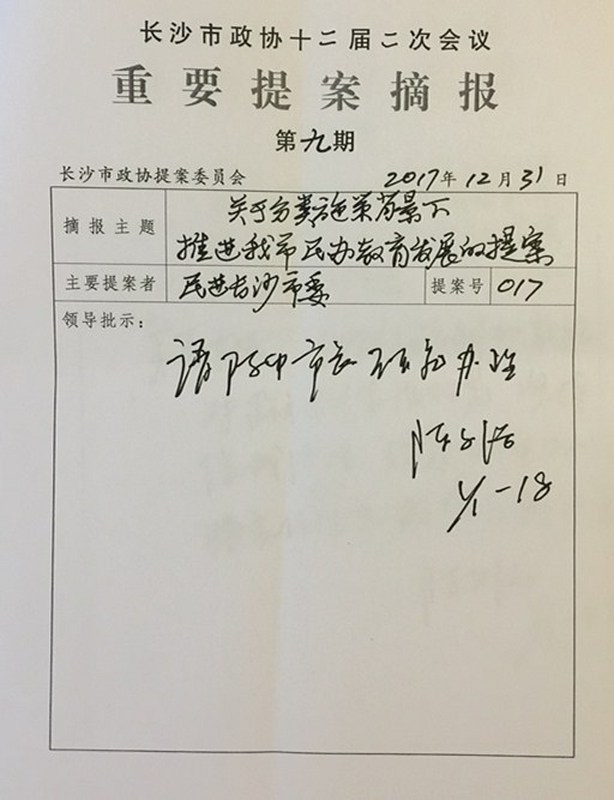 长沙市政协十二届二次会议
重要提案摘报
第九期
长沙市政协提案委员会 2017年12月31日
摘报主题 关于分类施策背景下
推进我市民办教育发展的提案
主要提案者 民进长沙市委 提案号 017
领导批示：
请 市长 办理
陈
1/1-18